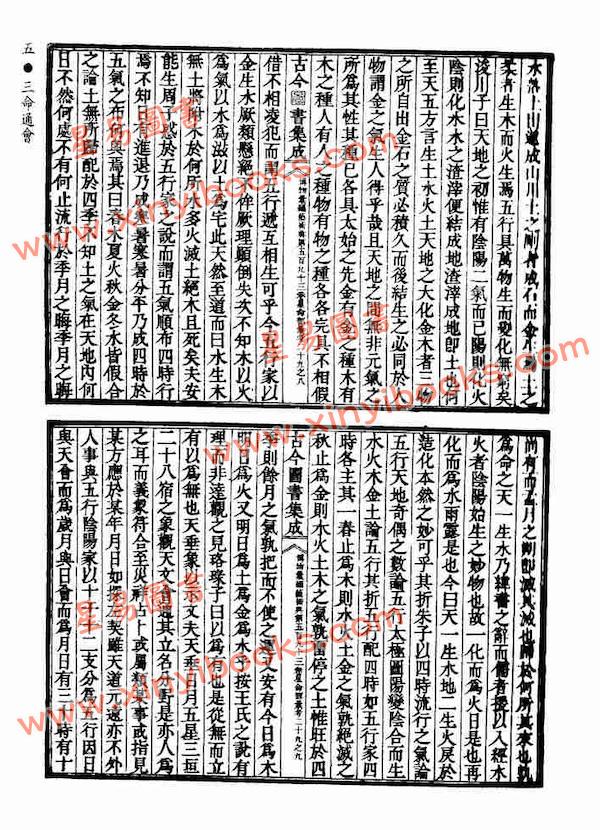 五 ● 三命通會
水落土出遂成山川土之剛者成石而金生焉土之
柔者生木而火生焉五行具萬物生而變化無窮矣
浚川子曰天地之初惟有陰陽二氣而已陽則火
陰則化水水之渣滓便結成地渣滓成地即土也何
至天五方言生土水火土天地之大化金木者三物
之所自出金石之質必積久而後結生之必同於人
物謂金之氣生人得乎哉且天地之間無非元氣之
所為其性其種已各具太始之先金有金之種木有
木之種人有人之種物有物之種各各完具不相假
古今圖書集成
博物彙編藝術典第五百九十三卷星命部彙考二十九之八
借不相凌犯而謂五行遞互相生可乎今五行家以
金生水厥類懸絕不侔厥理顛倒失次不知木以火
為氣以水為滋以土為宅此天然至道而曰水生木
無土將附木於何所水多火滅土絕木且死矣夫安
能生周子惑於五行家之說而謂五氣順布四時行
焉不知日有進退乃成寒暑寒暑分平乃成四時於
五氣之布何與焉其曰春木夏火秋金冬水皆假合
之論土無所歸配於四季不知土之氣在天地內何
日不然何處不有何止流行於季月之晦季月之晦
尚有而孟月之朔即滅其滅也歸於何所其來也孰
為命之天一生水乃緯書之辭而儒者援以入經水
火者陰陽始生之妙物也故一化而為火日是也再
化而為水雨露是也今曰天一生水地二生火戾於
造化本然之妙可乎其折朱子以四時流行之氣論
五行天地奇偶之數論五行太極圖陽變陰合而生
水火木金土論五行其折五行配四時如五行家四
時各主其一春止為木則水火土金之氣孰絕滅之
秋止為金則水火土木之氣孰留停之土惟旺於四
古今圖書集成
博物彙編藝術典第五百九十三卷星命部彙考二十九之九
季則餘月之氣孰把而不使之運又安有今日為木
明日為火又明日為土為金為水乎按王氏之說有
理而非達觀之見珞琭子曰以為有也是從無而立
有以為無也天垂象以示文夫天垂日月五星三垣
二十八宿之象觀天文者遂其立名分野是亦人為
之耳而義象符合至災祥占卜或屬某事或指見
某方應於某年月日如探左契雖天道元遠亦不外
人事與五行陰陽家以十干十二支分為五行因日
與天會而為歲月與日會而為月日有三十時有十
www.xinyibooks.com
星易圖書
www.xinyibooks.com
星易圖書
www.xinyibooks.com
星易圖書